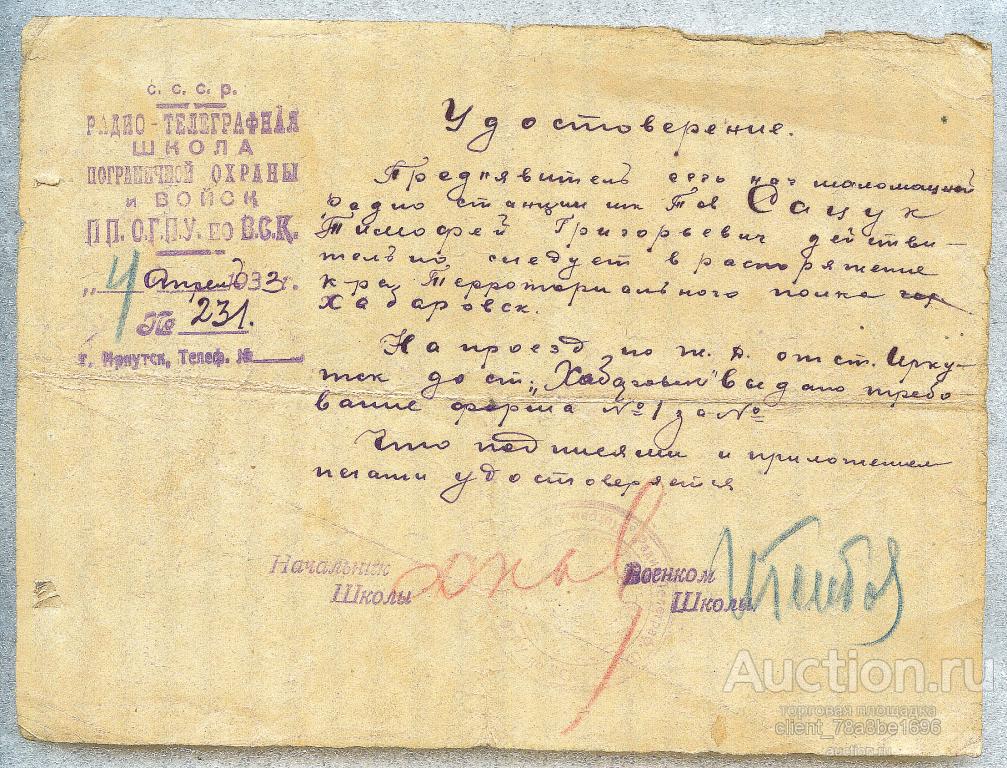 С. С. С. Р.
РАДИО-ТЕЛЕГРАФНАЯ
ШКОЛА
ПОГРАНИЧНОЙ ОХРАНЫ
и ВОЙСК
ПП. О.Г.П.У. по В.С.К.
„ 4 Апрель 1933 г.
№ 231.
г. Иркутск, Телеф. №
Удостоверение.
Преднявитель есть нач маломощной
радио станции тов Сацук
Тимофей Григорьевич действи-
тельно следует в распоряжение
к-ра Терроториального полка гор
Хабаровск.
На проезд по ж. д. от ст. Ирку-
тск до ст. „Хабаровск" выдано требо
вание форма № 1 за №
Что подписями и приложением
печати удостоверяется
Начальник
Школы
Военком
Школы
Auction.ru
торговая площадка
client_78a8be1696
auction.ru